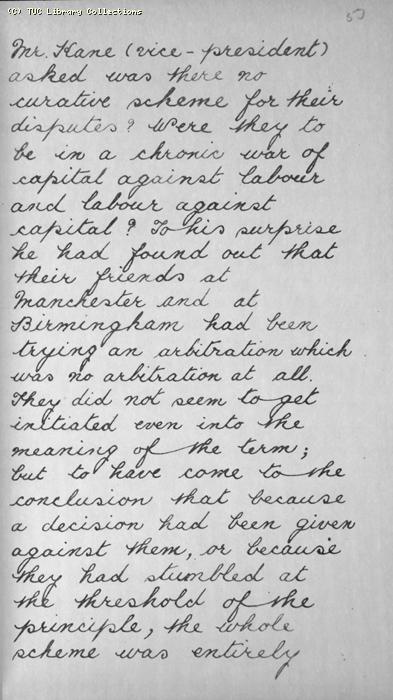 (C) TUC Library Collections
Mr. Kane (vice-president)
asked was there no
curative scheme for their
disputes? Were they to
be in a chronic war of
capital against labour
and labour against
capital? To his surprise
he had found out that
their friends at
Manchester and at
Birmingham had been
trying an arbitration which
was no arbitration at all.
They did not seem to get
initiated even into the
meaning of the term;
but to have come to the
conclusion that because
a decision had been given
against them, or because
they had stumbled at
the threshold of the
principle, the whole
scheme was entirely